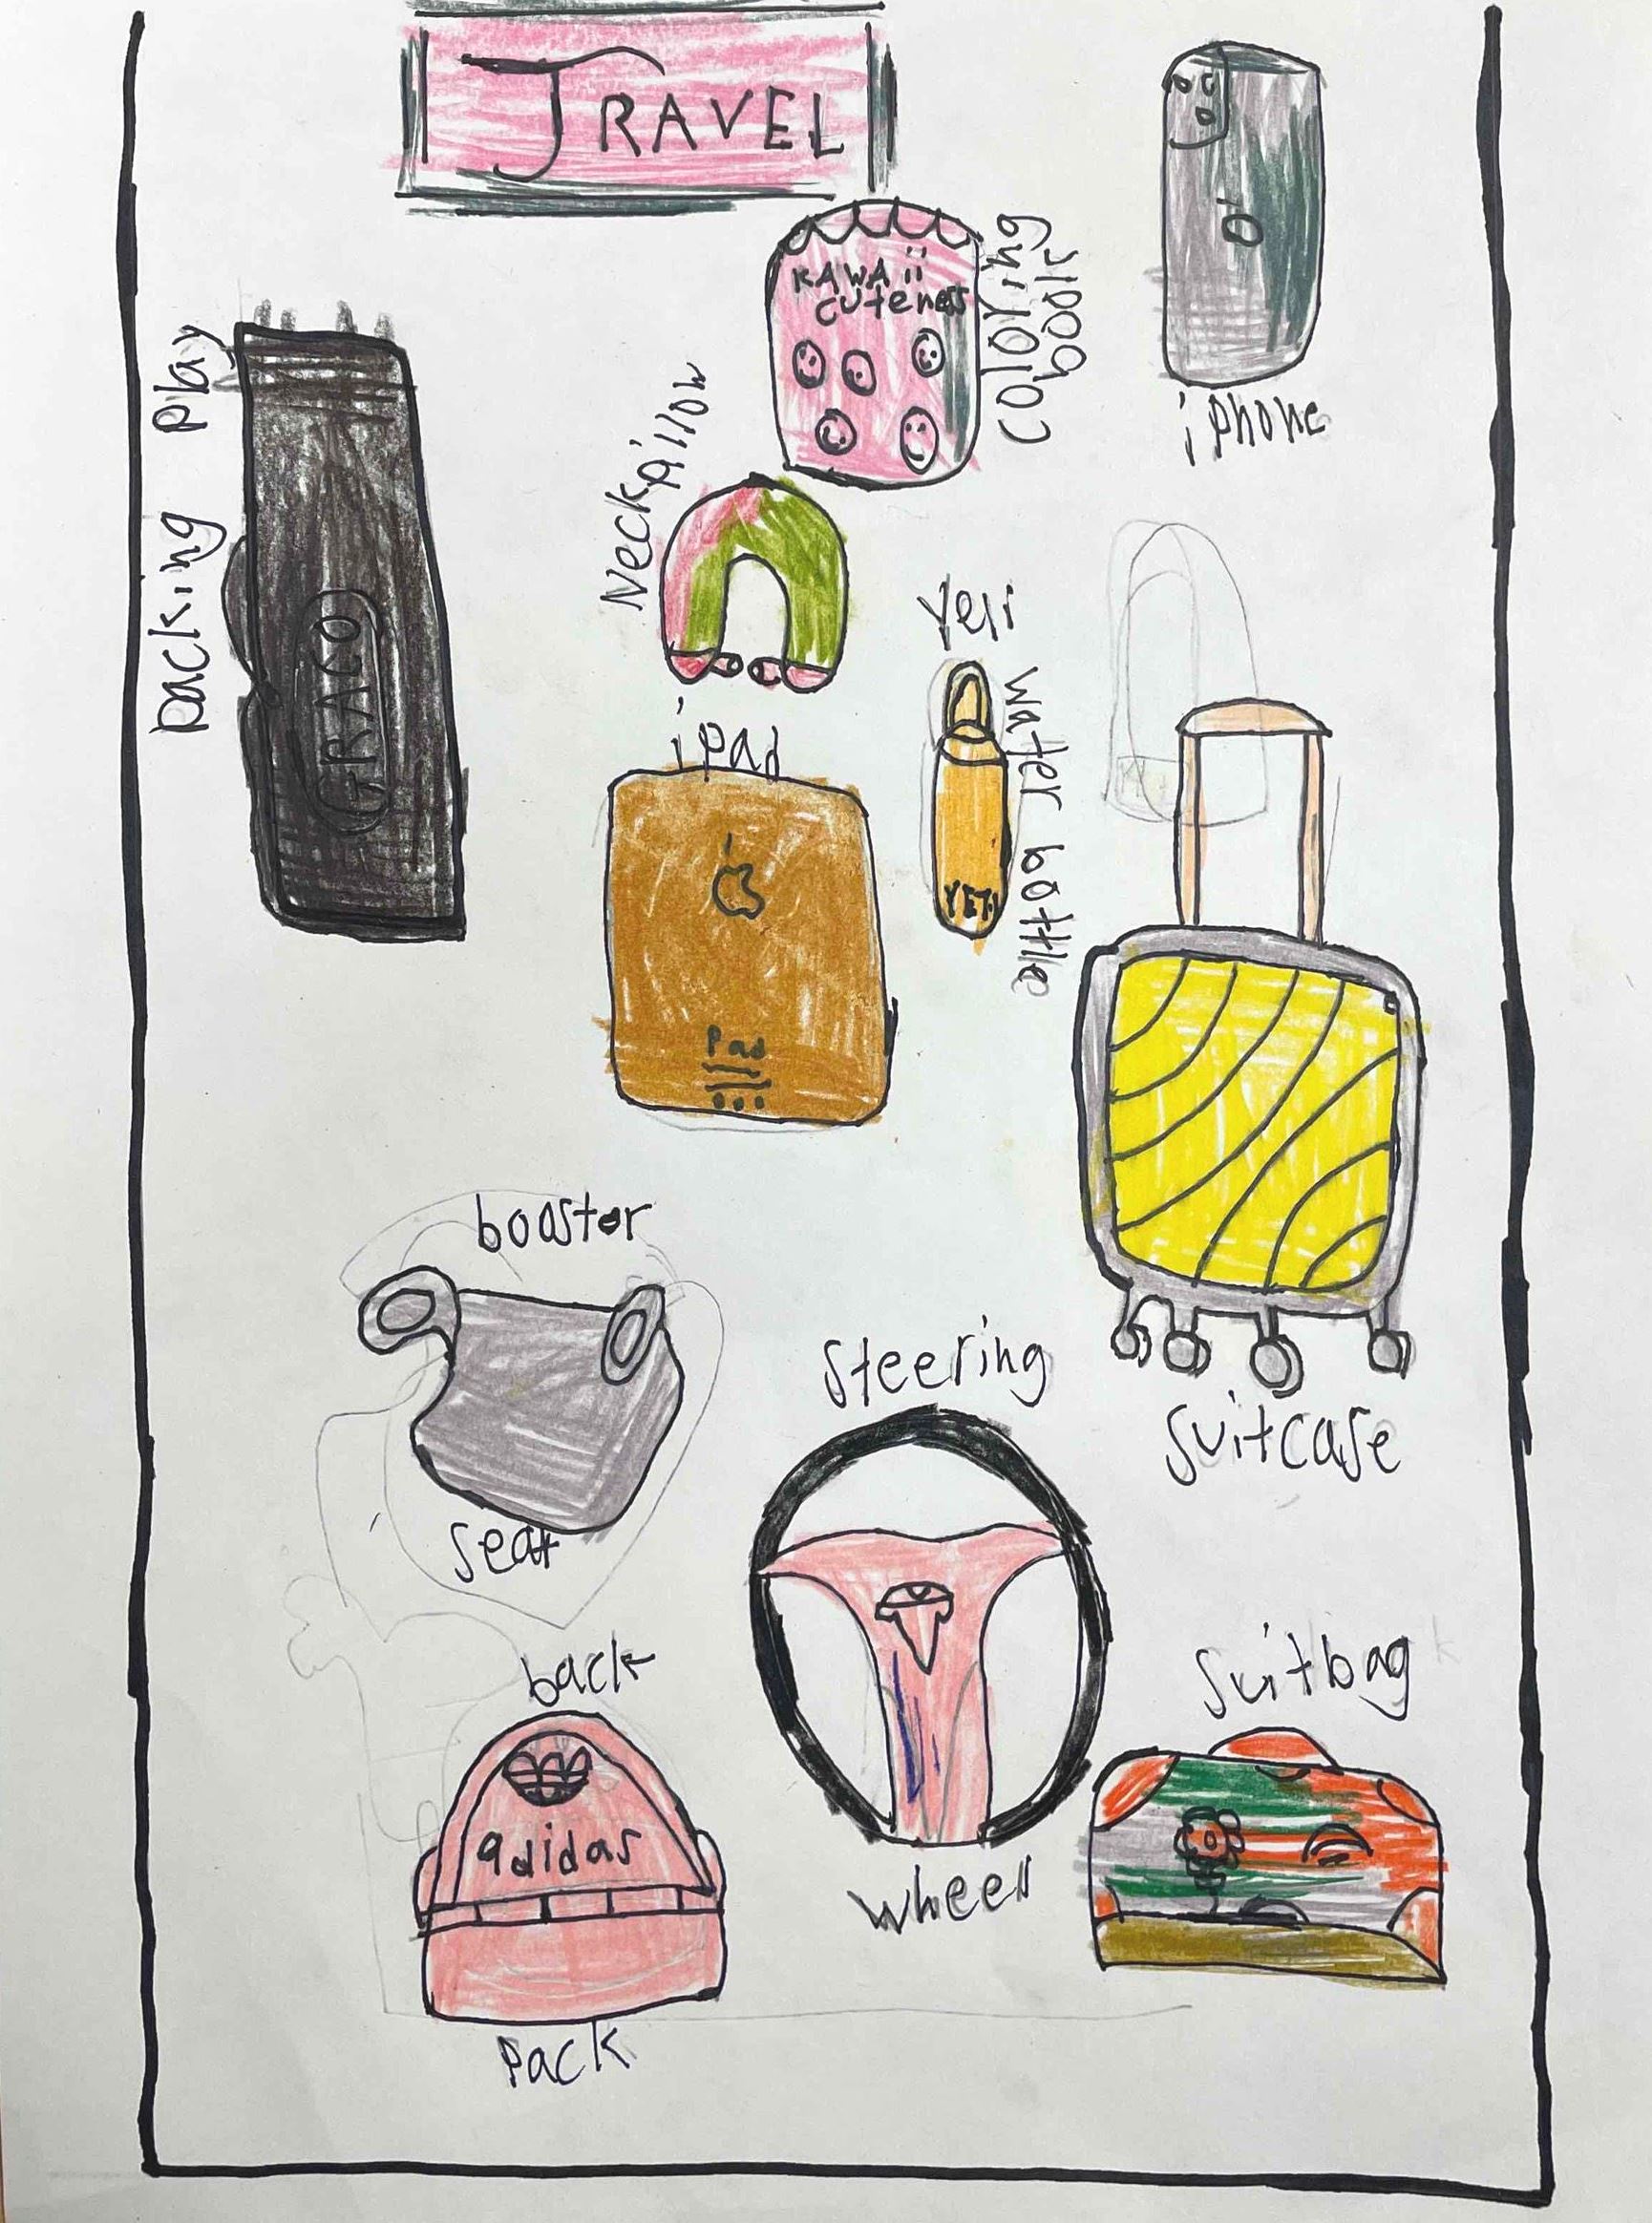 TRAVEL
KAWAii
cuteness
coloring
book
iphone
packing play
GRACO
Neckpillow
Yeti
water bottle
YETI
ipad
Pad
booster
seat
steering
wheel
suitcase
back
adidas
pack
suitbag